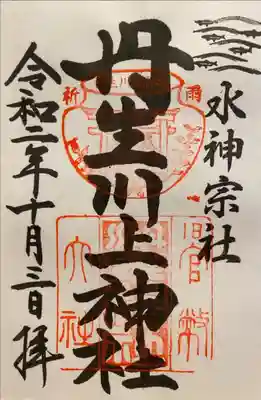 水神宗社
丹生川上神社
令和二年十月三日拝
雨
祈
官幣
大社